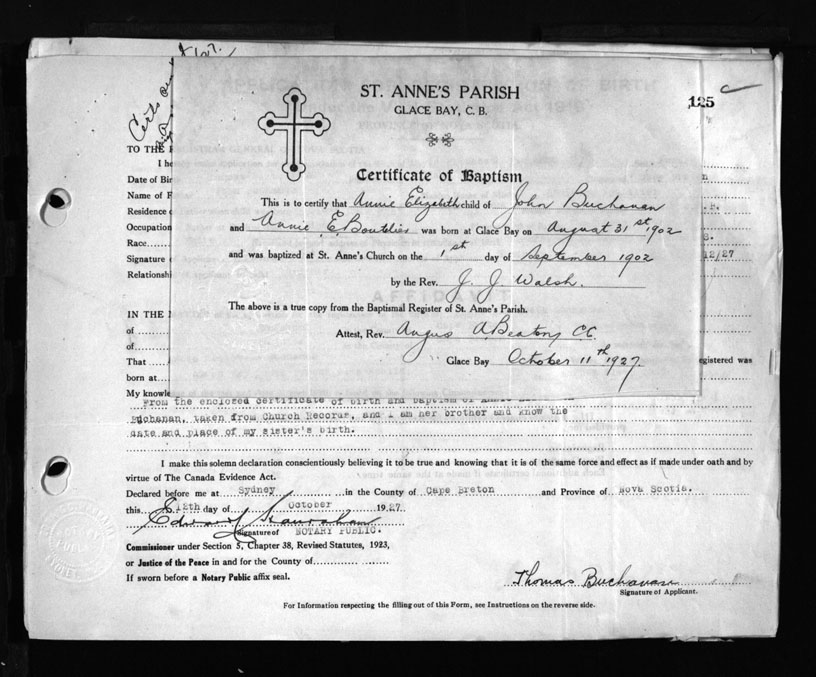 ST. ANNE'S PARISH
GLACE BAY, C. B.
125
Certificate of Baptism
This is to certify that Annie Elizabeth child of John Buchanan
and Annie E. Boutilier was born at Glace Bay on August 31st 1902
and was baptized at St. Anne's Church on the 1st day of September 1902
by the Rev. J. J. Walsh.
The above is a true copy from the Baptismal Register of St. Anne's Parish.
Attest, Rev. Angus A. Beaton, C.C.
Glace Bay October 11th 1927.
TO THE
I he
Date of Bir
Name of F
Residence
Occupation
Race
Signature
12/27
Relationshi
IN THE
of
of
That
egistered was
born at
My knowle
From the enclosed certificate of birth and baptism of
Buchanan, taken from Church Records, and I am her brother and know the
date and place of my sister's birth.
I make this solemn declaration conscientiously believing it to be true and knowing that it is of the same force and effect as if made under oath and by
virtue of The Canada Evidence Act.
Declared before me at Sydney in the County of Cape Breton and Province of Nova Scotia.
this 12th day of October 1927.
Signature of NOTARY PUBLIC.
Commissioner under Section 5, Chapter 38, Revised Statutes, 1923,
or Justice of the Peace in and for the County of
If sworn before a Notary Public affix seal.
Thomas Buchanan
Signature of Applicant.
For Information respecting the filling out of this Form, see Instructions on the reverse side.